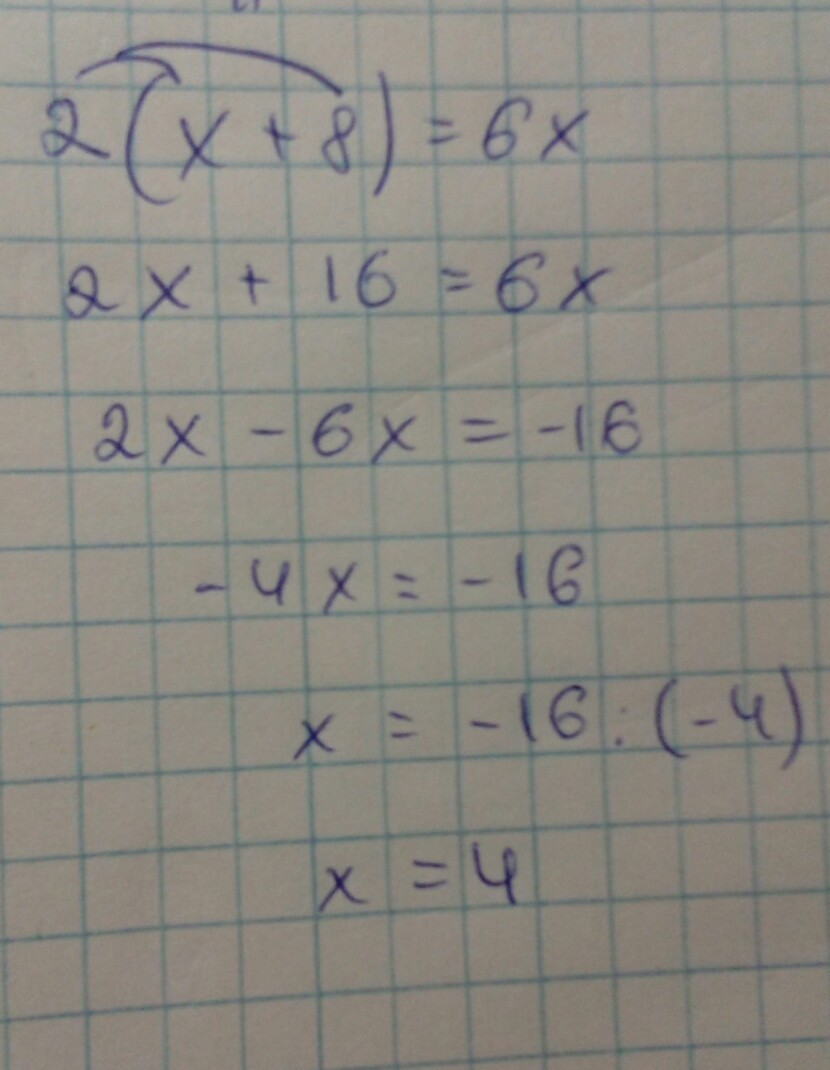 2(x+8)=6x
2x+16=6x
2x-6x=-16
-4x=-16
x=-16:(-4)
x=4